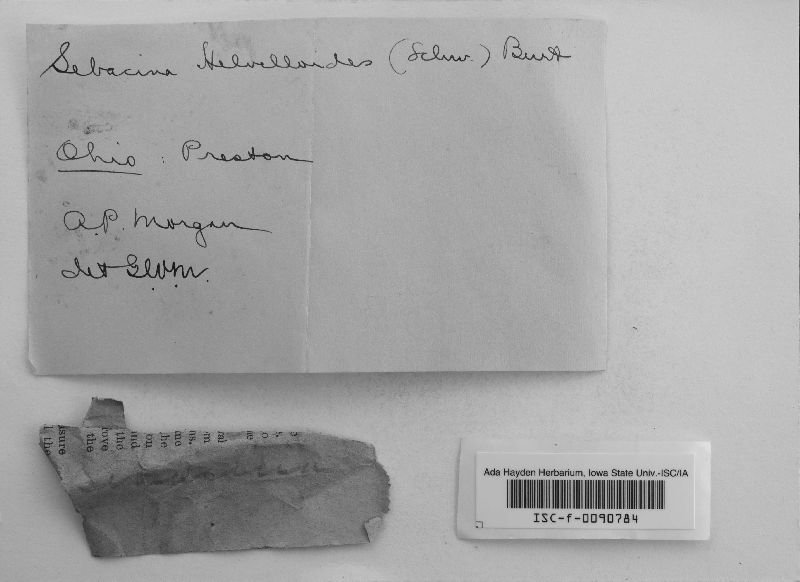 Sebacina Helvelloides (Schw.) Burt
Ohio : Preston
A.P. Morgan
det G.W.M.
asure
the
rove
the
nd
on
he
me
Ada Hayden Herbarium, Iowa State Univ.-ISC/IA
ISC-f-0090784